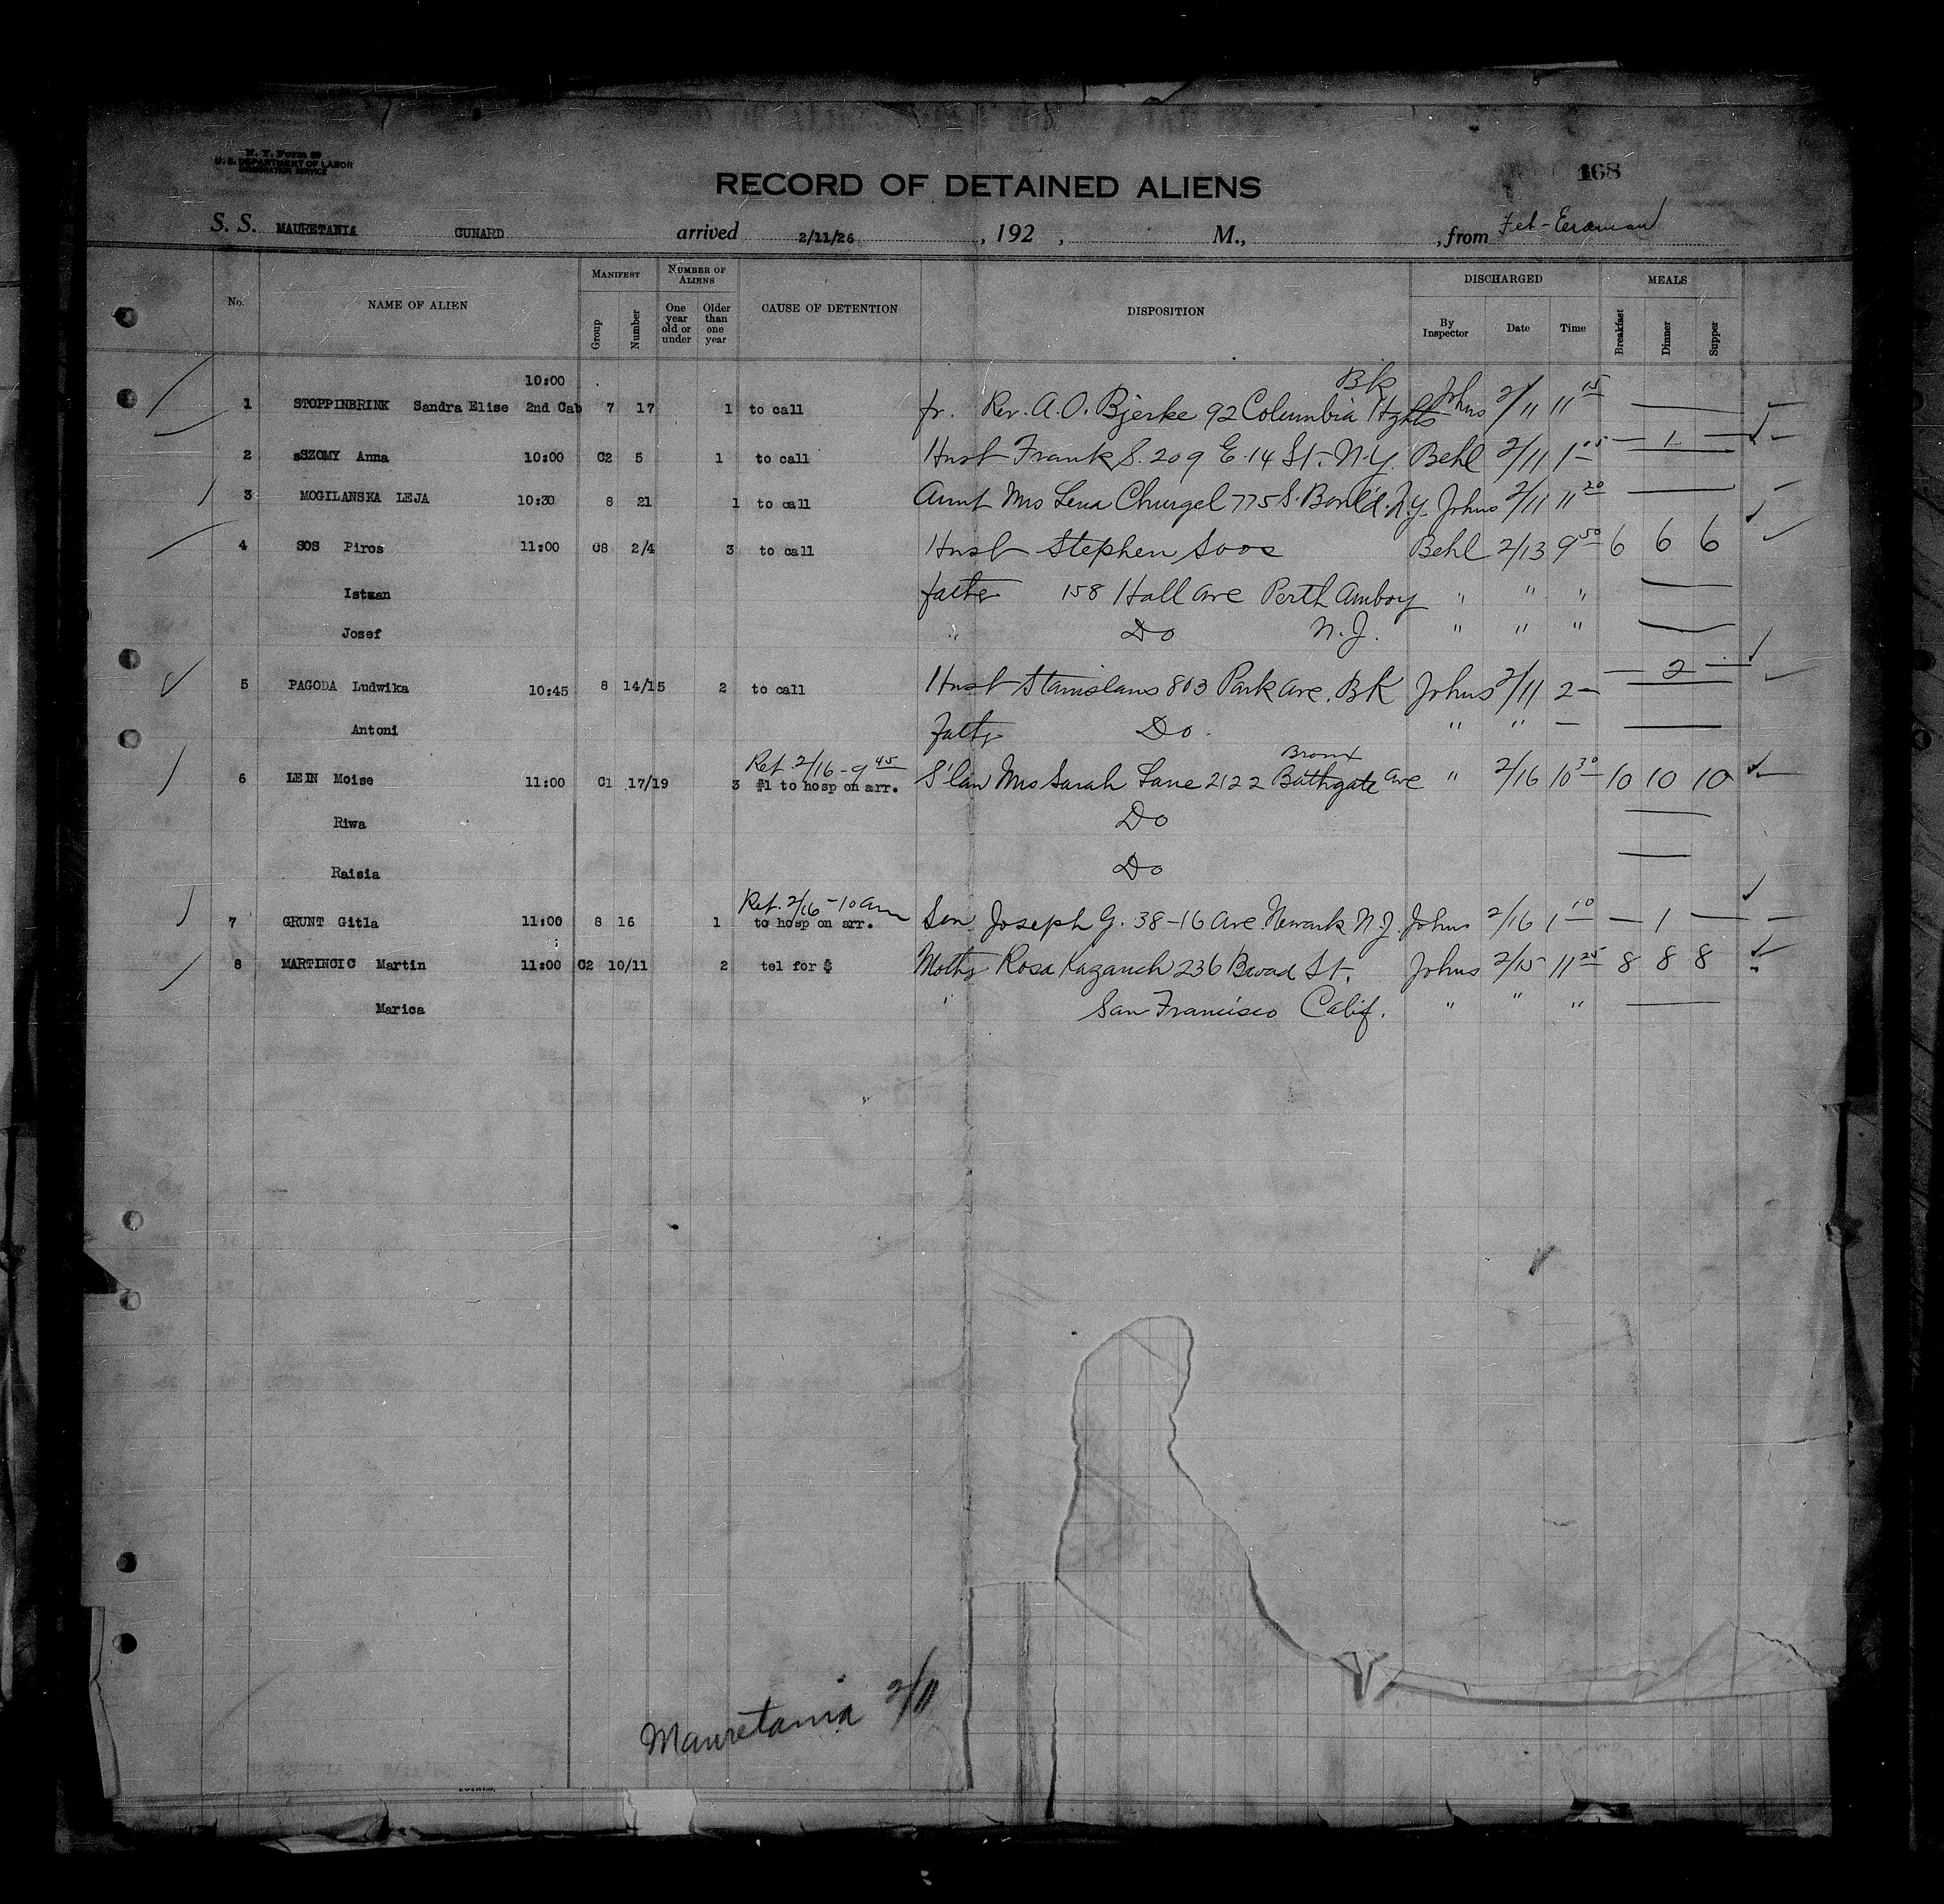 N. Y. Form
U. S. DEPARTMENT OF LABOR
IMMIGRATION SERVICE
168
RECORD OF DETAINED ALIENS
S. S. MAURETANIA CUNARD arrived 2/11/26 , 192 , M., , from
No. NAME OF ALIEN MANIFEST Group Number NUMBER OF ALIENS One year old or under Older than one year CAUSE OF DETENTION DISPOSITION DISCHARGED By Inspector Date Time MEALS Breakfast Dinner Supper
10:00 Bk
1 STOPPINBRINK Sandra Elise 2nd Cab 7 17 1 to call fr. Rev. A. O. Bjerke 92 Columbia Hghts Johns 2/11 11 15
2 sSZOMY Anna 10:00 C2 5 1 to call Husb Frank S. 209 E. 14 St. N.Y. Behl 2/11 1 05 — 1 —
3 MOGILANSKA LEJA 10:30 8 21 1 to call Aunt Mrs Lena 775 S. N.Y. Johns 2/11 11 20 —
4 SOS Piros 11:00 C8 2/4 3 to call Husb Stephen Soos Behl 2/13 9 50 6 6 6
Istzan father 158 Hall Ave Perth Amboy " " " —
Josef " Do N.J. " " " —
5 PAGODA Ludwika 10:45 8 14/15 2 to call Husb Stanislaus 803 Park Ave. BK Johns 2/11 2 — — 2 —
Antoni Fathr Do. " " — —
Ret. 2/16 - 9 45 Bronx
6 LEIN Moise 11:00 C1 17/19 3 #1 to hosp on arr. S'law Mrs Sarah Lane 2122 Bathgate Ave " 2/16 10 30 10 10 10
Riwa Do —
Raisia Do —
Ret. 2/16 - 10 am
7 GRUNT Gitla 11:00 8 16 1 to hosp on arr. Son Joseph G. 38-16 Ave. Newark N.J. Johns 2/16 1 10 — 1 —
8 MARTINCIC Martin 11:00 C2 10/11 2 tel for $ Mothr Rosa 236 Broad St. Johns 2/15 11 25 8 8 8
Marica " San Francisco Calif. " " " —
Mauretania 2/11